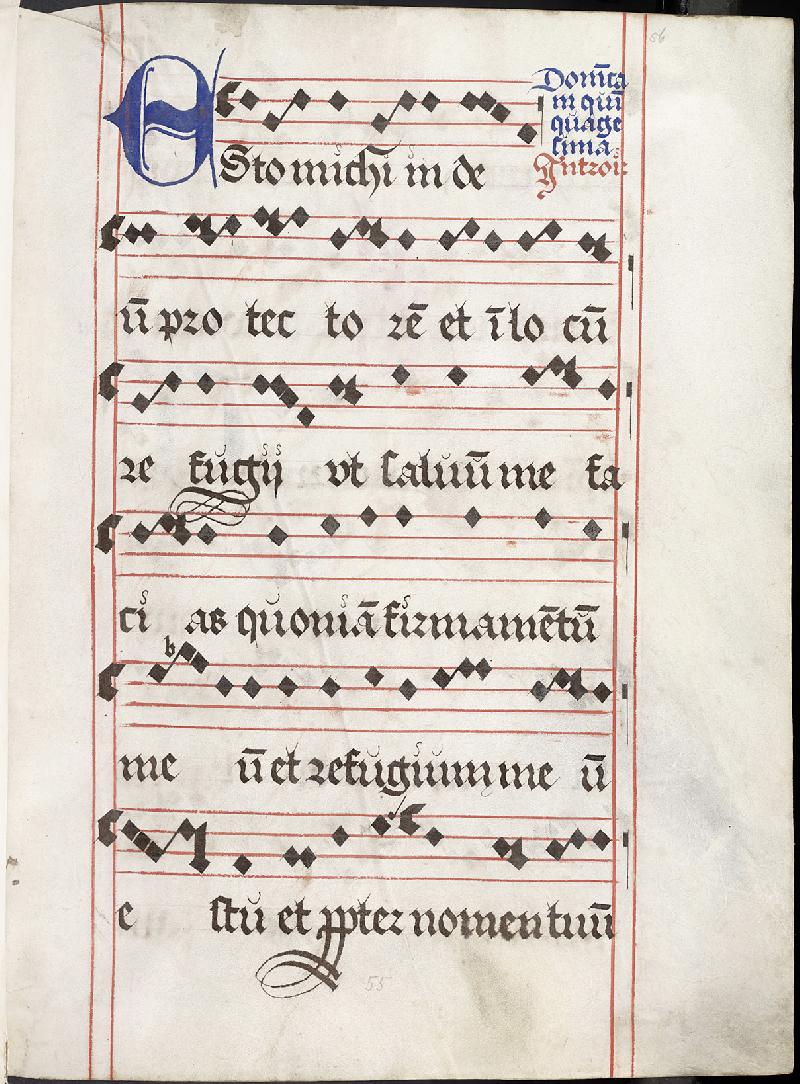 56
Domica
in qui
quage
sima
Introit
Esto michi in de
ū pro tec to rē et ī lo cū
re fugij vt saluū me fa
ci as quoniā firmamētū
b
me ū et refugium me ū
e s tu et ꝓpter nomen tuū
55